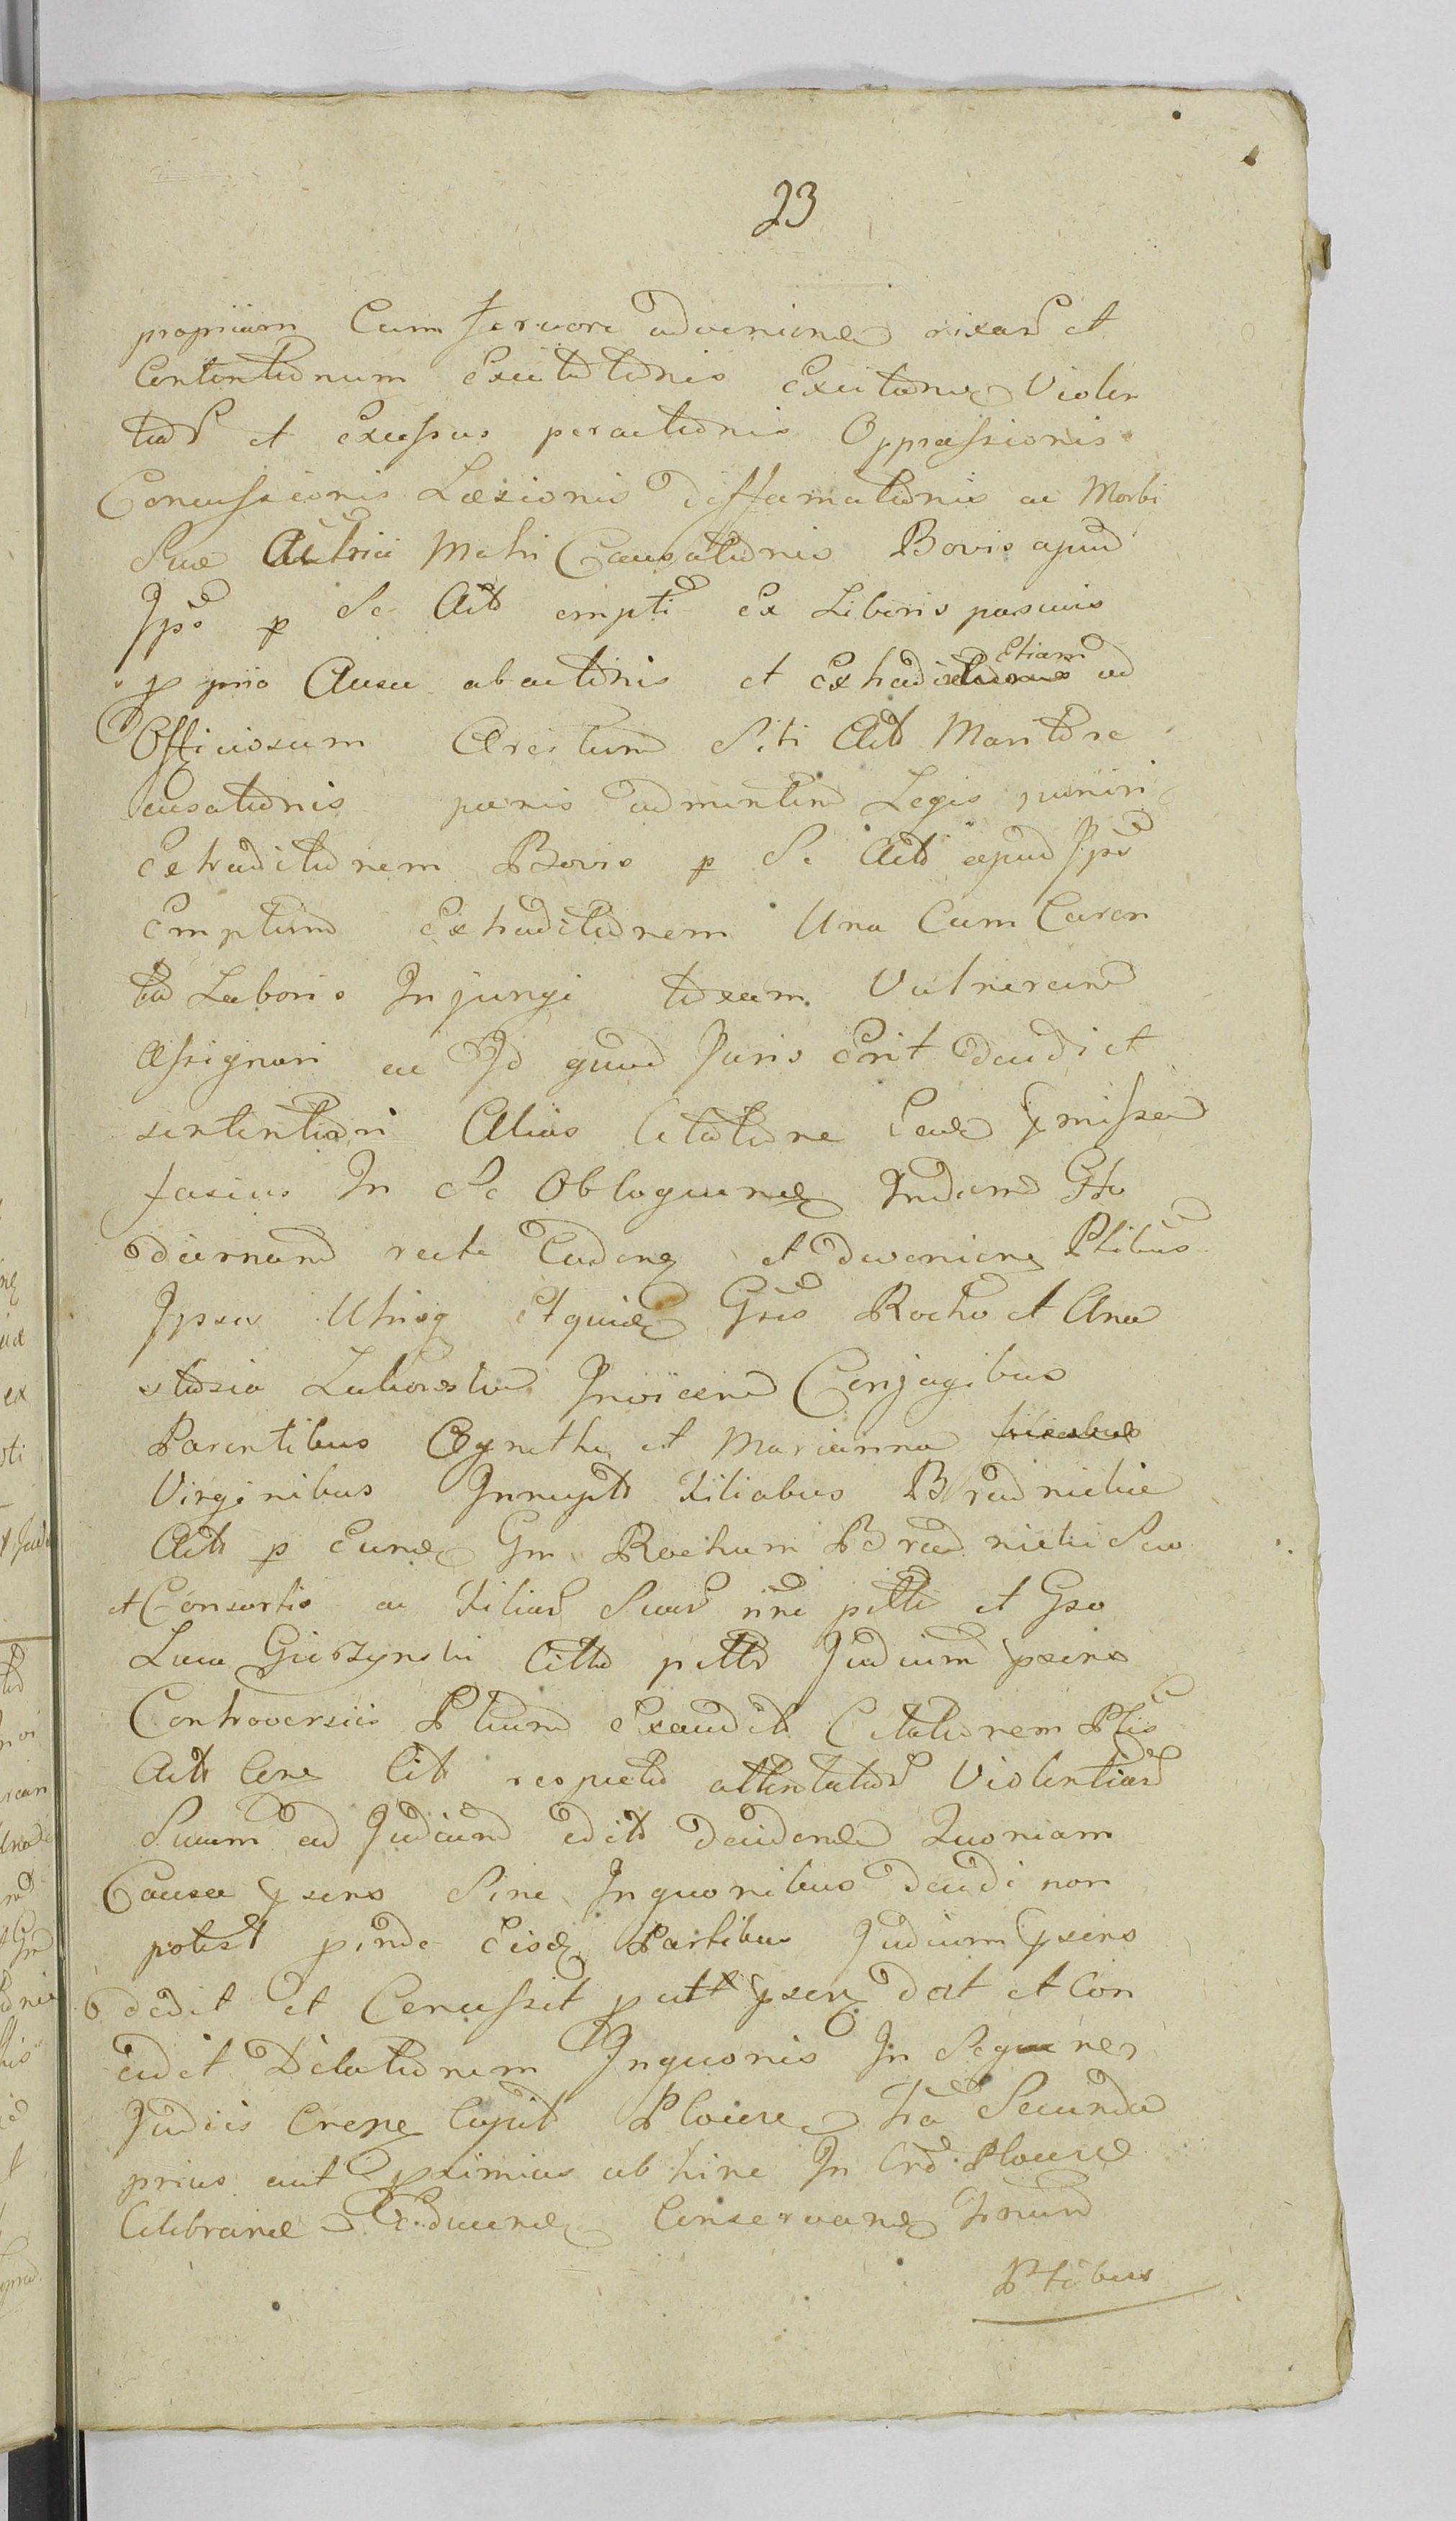 23
propriam Cum fervore advenione rixar et
Contentionum Excitationis Excitone Violen
tiar et Excessus peractionis Oppressionis
Concussionis Læsionis diffamationis ac Morbi
Suæ Actrici Matri Causationis Bovis apud
Ips p Se Act empti ex Liberis pascuis
p prio Ausu abactionis et Extradi Etiam ad
Officiosum Arestum Siti Act Maritore
cusationis pœnis ad mentem Legis puniri
Extraditionem Bovis p Se Act apud Ips
Emptum Extraditionem Una Cum Caren
tia Laboris Injungi taxam Vulnerum
Assignari ac Id quod Juris Erit decidi et
sententiari Alias Citatione Ead pmissa
fusius In Se Obloquen Indum Hto
diernum recte Caden et devenien Ptibus
Ipsis Utrisq Et quid Gsis Rocho et Ana
stasia Lutiorostow Invicem Conjugibus
Parentibus Agnetha et Marianna
Virginibus Innupt Filiabus Brodnickie
Act p Eund Gm Rochum Brodnicki Suo
et Consortis ac Filiar Suar nne ptte et Gso
Luca Giezynski Citto ptto Judicium psens
Controversiis Ptium Exaudit Citationem Ptis
Act Cone Cit respectu attentator Violentiar
Suum ad Judicium edit decidend Quoniam
Causa psens Sine Inquonibus decidi non
potest pinde Eisd Partibus Judicium psens
dedit et Concessit putt psen dat et Con
cedit Dilationem Inquonis In Sequen
Judiis Crene Caput Plocire fra Secunda
prius aut pximius ab hinc In Crd Plocire
Celebrand Educend Conservand fmum
Ptibus